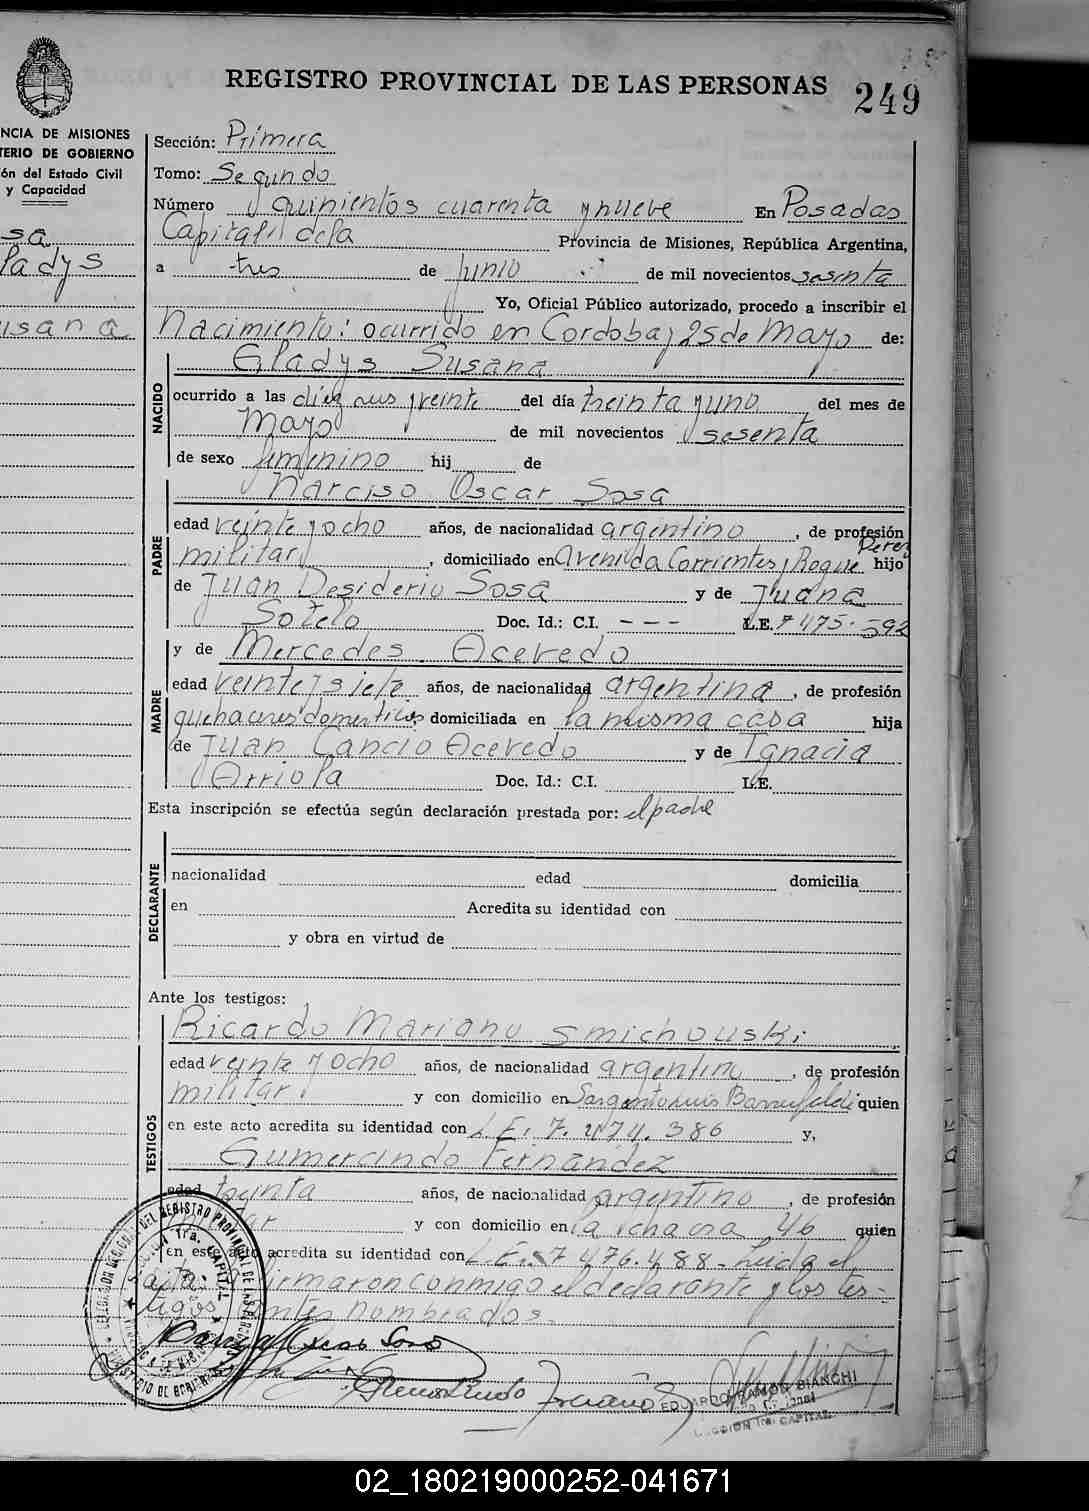 REGISTRO PROVINCIAL DE LAS PERSONAS
249
NCIA DE MISIONES
TERIO DE GOBIERNO
ón del Estado Civil
y Capacidad
sa
ladys
usana
Sección: Primera
Tomo: Segundo
Número quinientos cuarenta y nueve En Posadas
Capital dela Provincia de Misiones, República Argentina,
a tres de Junio de mil novecientos sesenta
Yo, Oficial Público autorizado, procedo a inscribir el
Nacimiento: ocurrido en Cordoba y 25 de Mayo de:
Gladys Susana
NACIDO
ocurrido a las y veinte del día treinta y uno del mes de
Mayo de mil novecientos sesenta
de sexo femenino hij de
Narciso Oscar Sosa
PADRE
edad veinte y ocho años, de nacionalidad argentino, de profesión
militar, domiciliado en Avenida Corrientes y Roque Perez hijo
de Juan Desiderio Sosa y de Juana
Sotelo Doc. Id.: C.I. - - - L.E. 7.475.592
y de Mercedes Acevedo
MADRE
edad veinte y siete años, de nacionalidad argentina, de profesión
quehaceres domesticos, domiciliada en la misma casa hija
de Juan Cancio Acevedo y de Ignacia
Arriola Doc. Id.: C.I. L.E.
Esta inscripción se efectúa según declaración prestada por: el padre
DECLARANTE
nacionalidad edad domicilia
en Acredita su identidad con
y obra en virtud de
Ante los testigos:
Ricardo Mariano Smichouski
TESTIGOS
edad veinte y ocho años, de nacionalidad argentino, de profesión
militar y con domicilio en Sargento Luis quien
en este acto acredita su identidad con L.E. 7.474.386 y,
Gumercindo Fernandez
edad treinta años, de nacionalidad argentino, de profesión
militar y con domicilio en la chacra 46 quien
en este acto acredita su identidad con L.E. 7.476.488. Leida el
acta firmaron conmigo el declarante y los tes-
tigos antes nombrados.
Oscar Sosa
EDUARDO RAMON BIANCHI
SECCION 1ra. CAPITAL
02_180219000252-041671